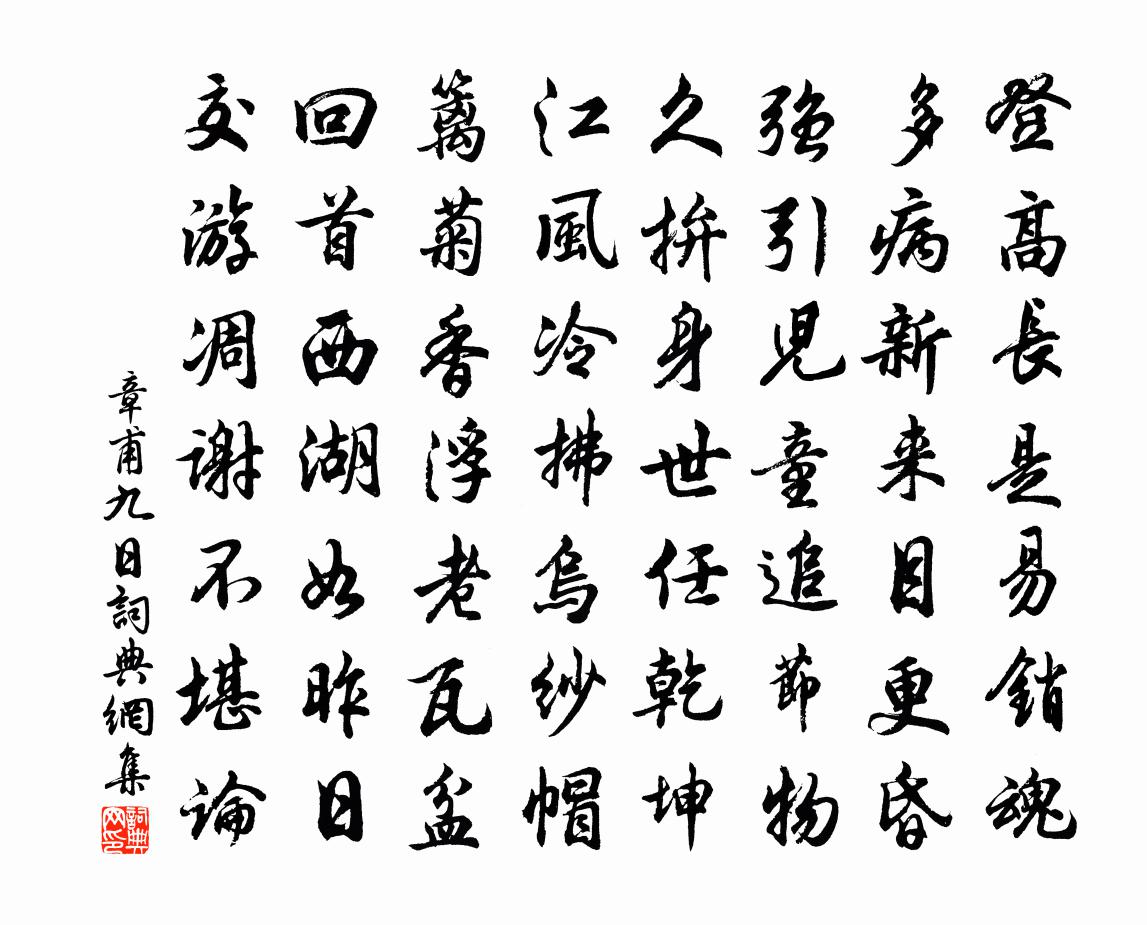 登高長是易銷魂
多病新来目更昏
強引児童追節物
久拚身世任乾坤
江風冷拂烏紗帽
籬菊香浮老瓦盆
回首西湖如昨日
交游凋謝不堪論
章甫九日詞典網集
詞典网印